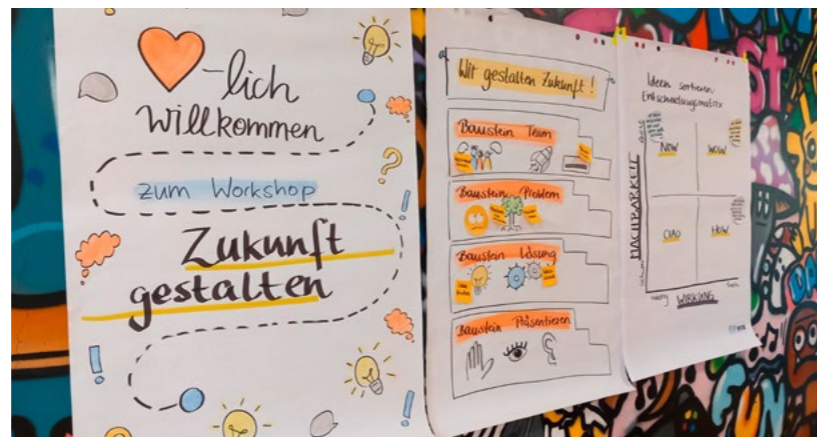 -lich
Willkommen
zum Workshop
Zukunft
gestalten
Wir gestalten Zukunft!
Baustein Team
Baustein Problem
Baustein Lösung
Baustein Präsentieren
Ideen sortieren:
Entscheidungsmatrix
MACHBARKEIT
NOW
WOW
CIAO
HOW
wenig WIRKUNG
FUN